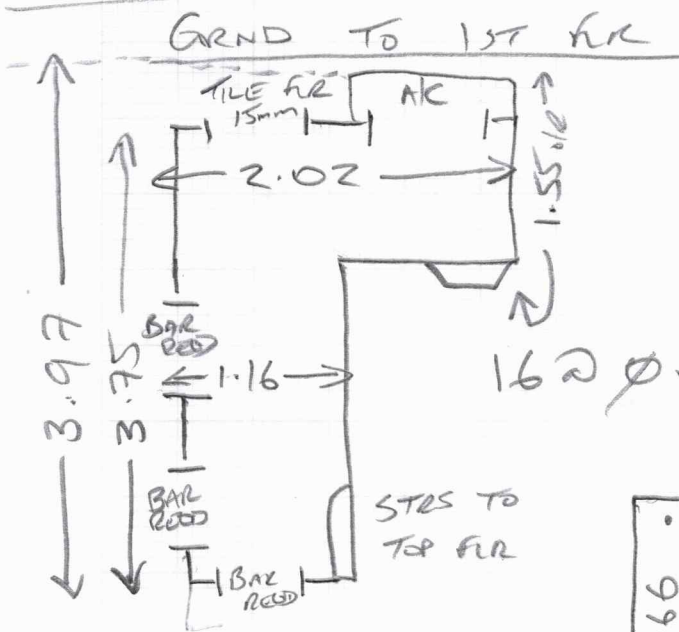 GRND TO 1ST FLR
TILE FLR
15mm
A/C
2.02
3.97
3.75
BAR
REQD
1.16
16 @ Ø.
BAR
REQD
STRS TO
TOP FLR
BAR
REQD
66